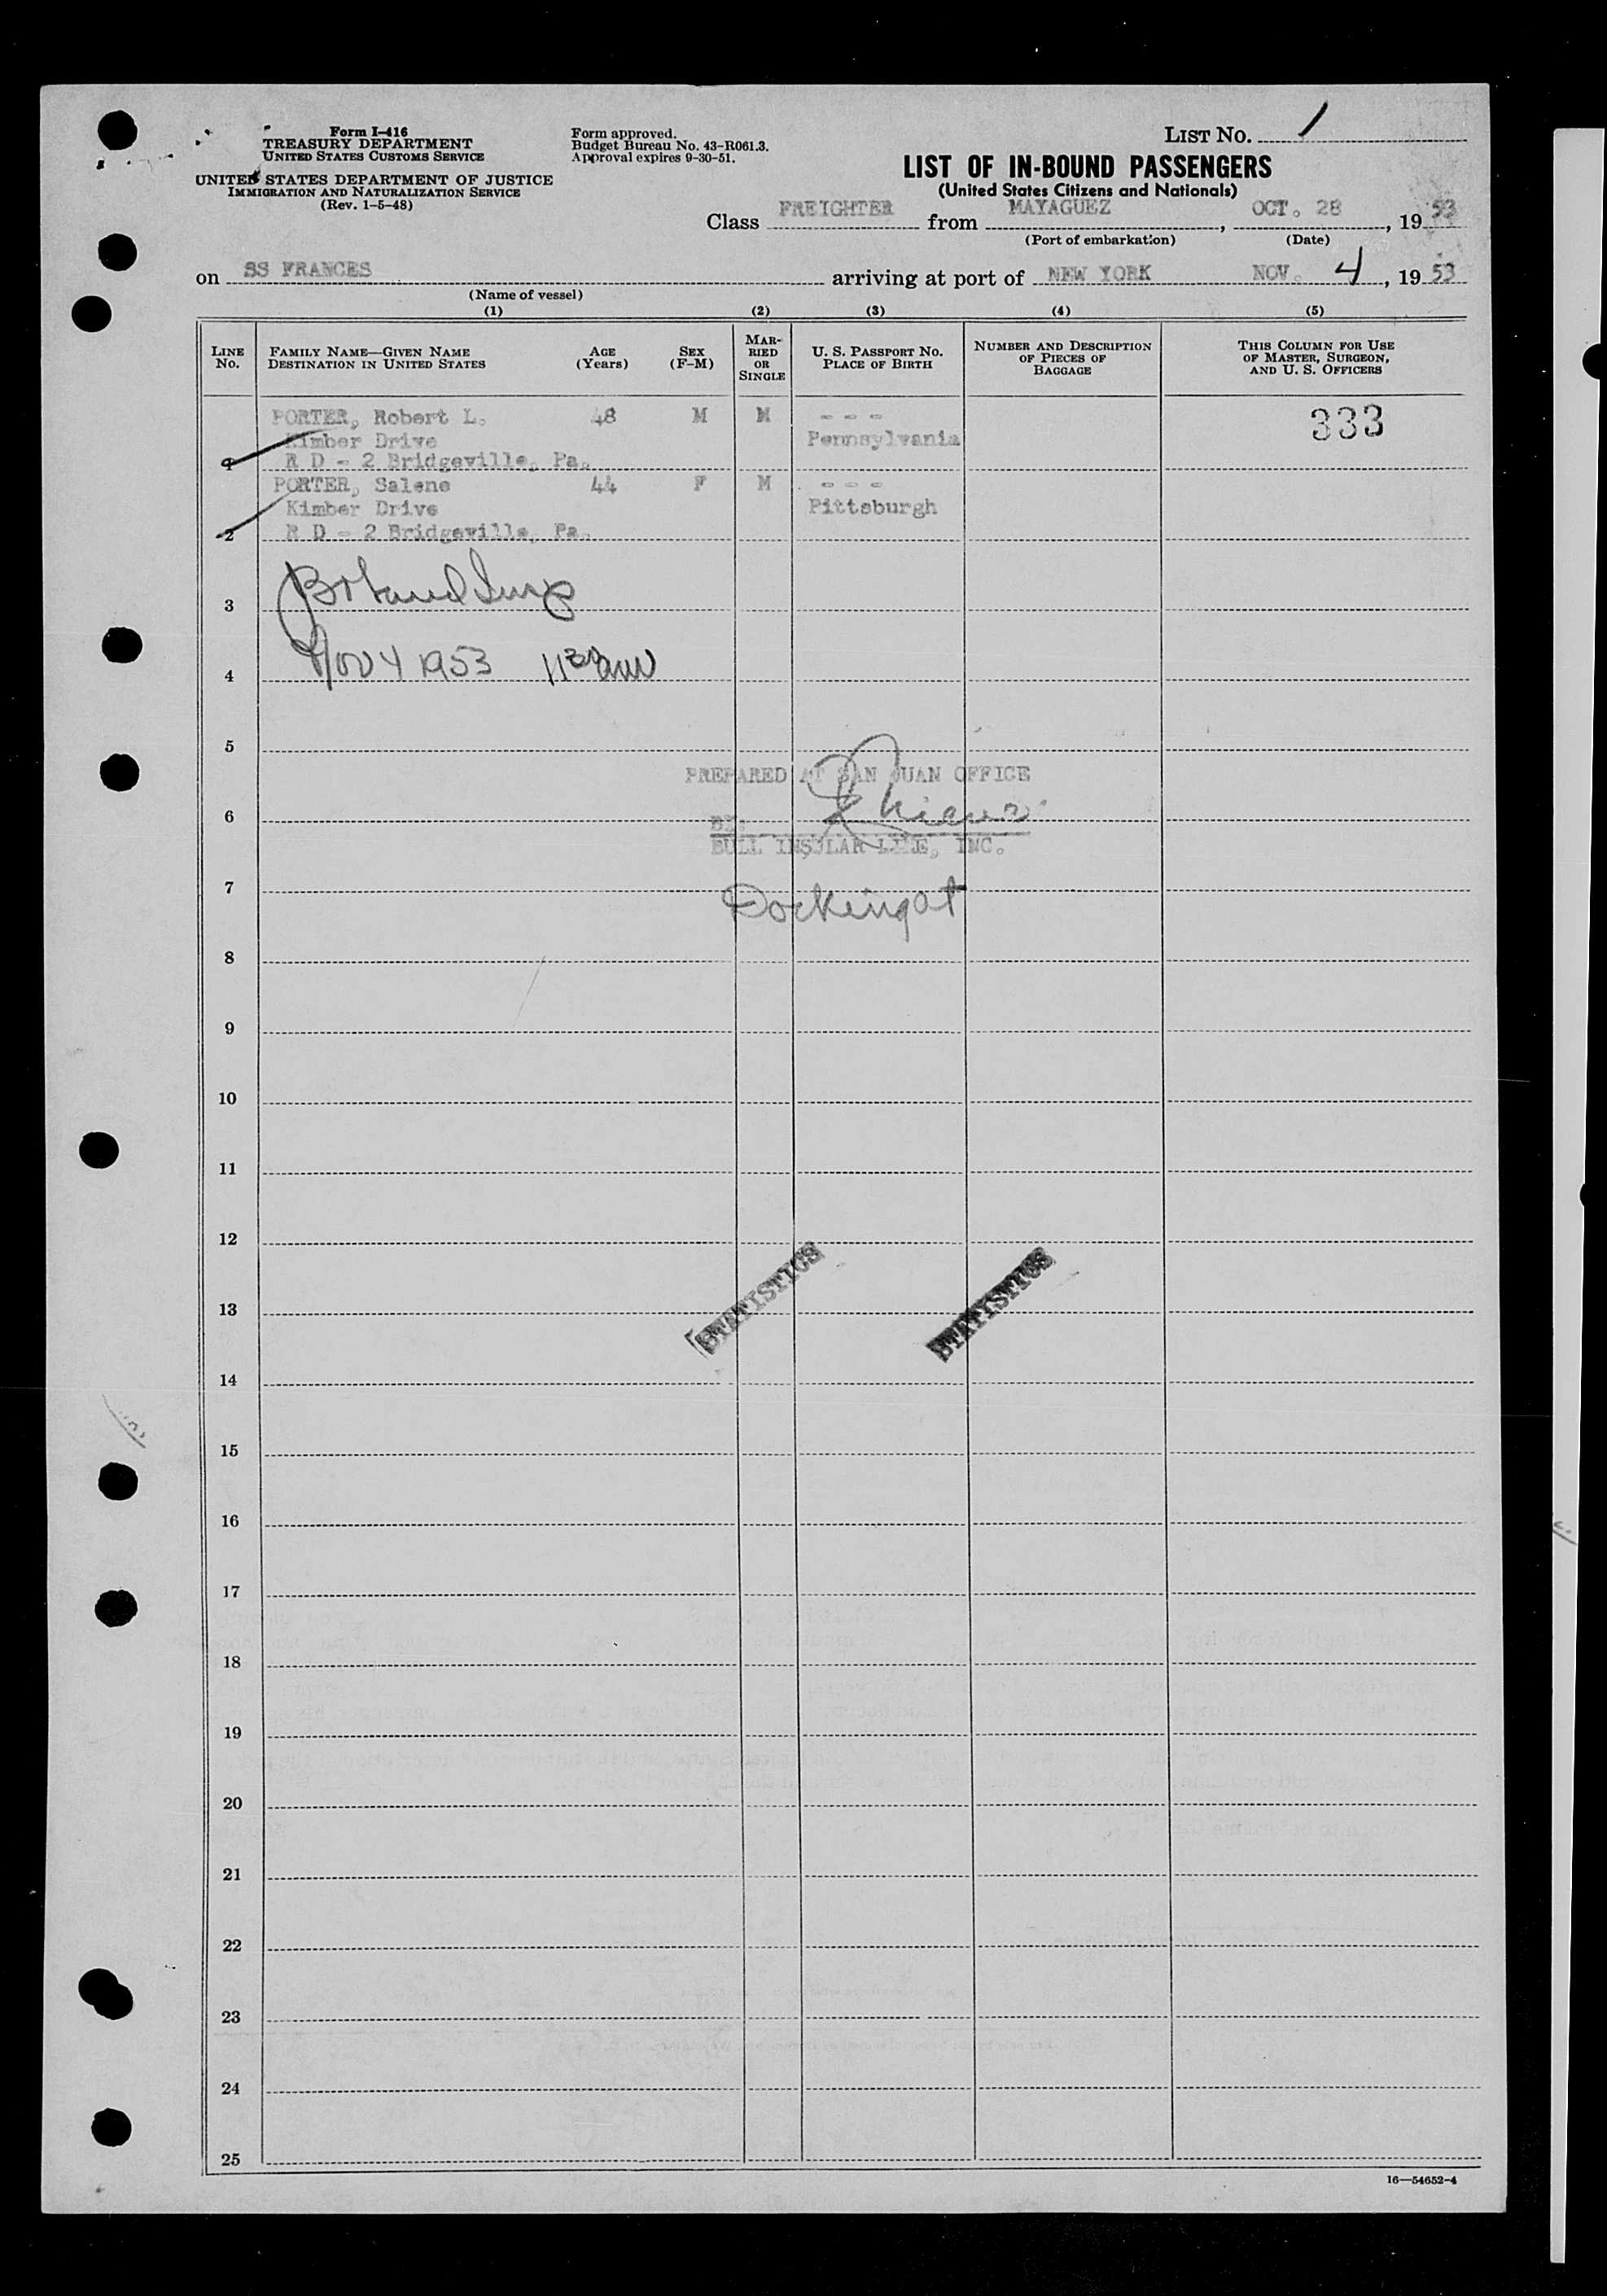 Form I-416
TREASURY DEPARTMENT
UNITED STATES CUSTOMS SERVICE
UNITED STATES DEPARTMENT OF JUSTICE
IMMIGRATION AND NATURALIZATION SERVICE
(Rev. 1-5-48)
Form approved.
Budget Bureau No. 43-R061.3.
Approval expires 9-30-51.
LIST NO. 1
LIST OF IN-BOUND PASSENGERS
(United States Citizens and Nationals)
Class FREIGHTER from MAYAGUEZ, OCT. 28, 1953
(Port of embarkation) (Date)
on SS FRANCES arriving at port of NEW YORK NOV. 4, 1953
(Name of vessel)
(1) (2) (3) (4) (5)
LINE NO.
FAMILY NAME—GIVEN NAME
DESTINATION IN UNITED STATES
AGE
(Years)
SEX
(F-M)
MAR-
RIED
OR
SINGLE
U. S. PASSPORT NO.
PLACE OF BIRTH
NUMBER AND DESCRIPTION
OF PIECES OF
BAGGAGE
THIS COLUMN FOR USE
OF MASTER, SURGEON,
AND U. S. OFFICERS
PORTER, Robert L. 48 M M - - - 333
Kimber Drive Pennsylvania
1 R D - 2 Bridgeville, Pa.
PORTER, Salene 44 F M - - -
Kimber Drive Pittsburgh
2 R D - 2 Bridgeville, Pa.
3
4 Nov 4 1953 11 30 am
5
PREPARED AT SAN JUAN OFFICE
6 BY:
BULL INSULAR LINE, INC.
7
Docking at
8
9
10
11
12
STATISTICS STATISTICS
13
14
15
16
17
18
19
20
21
22
23
24
25
16—54652-4